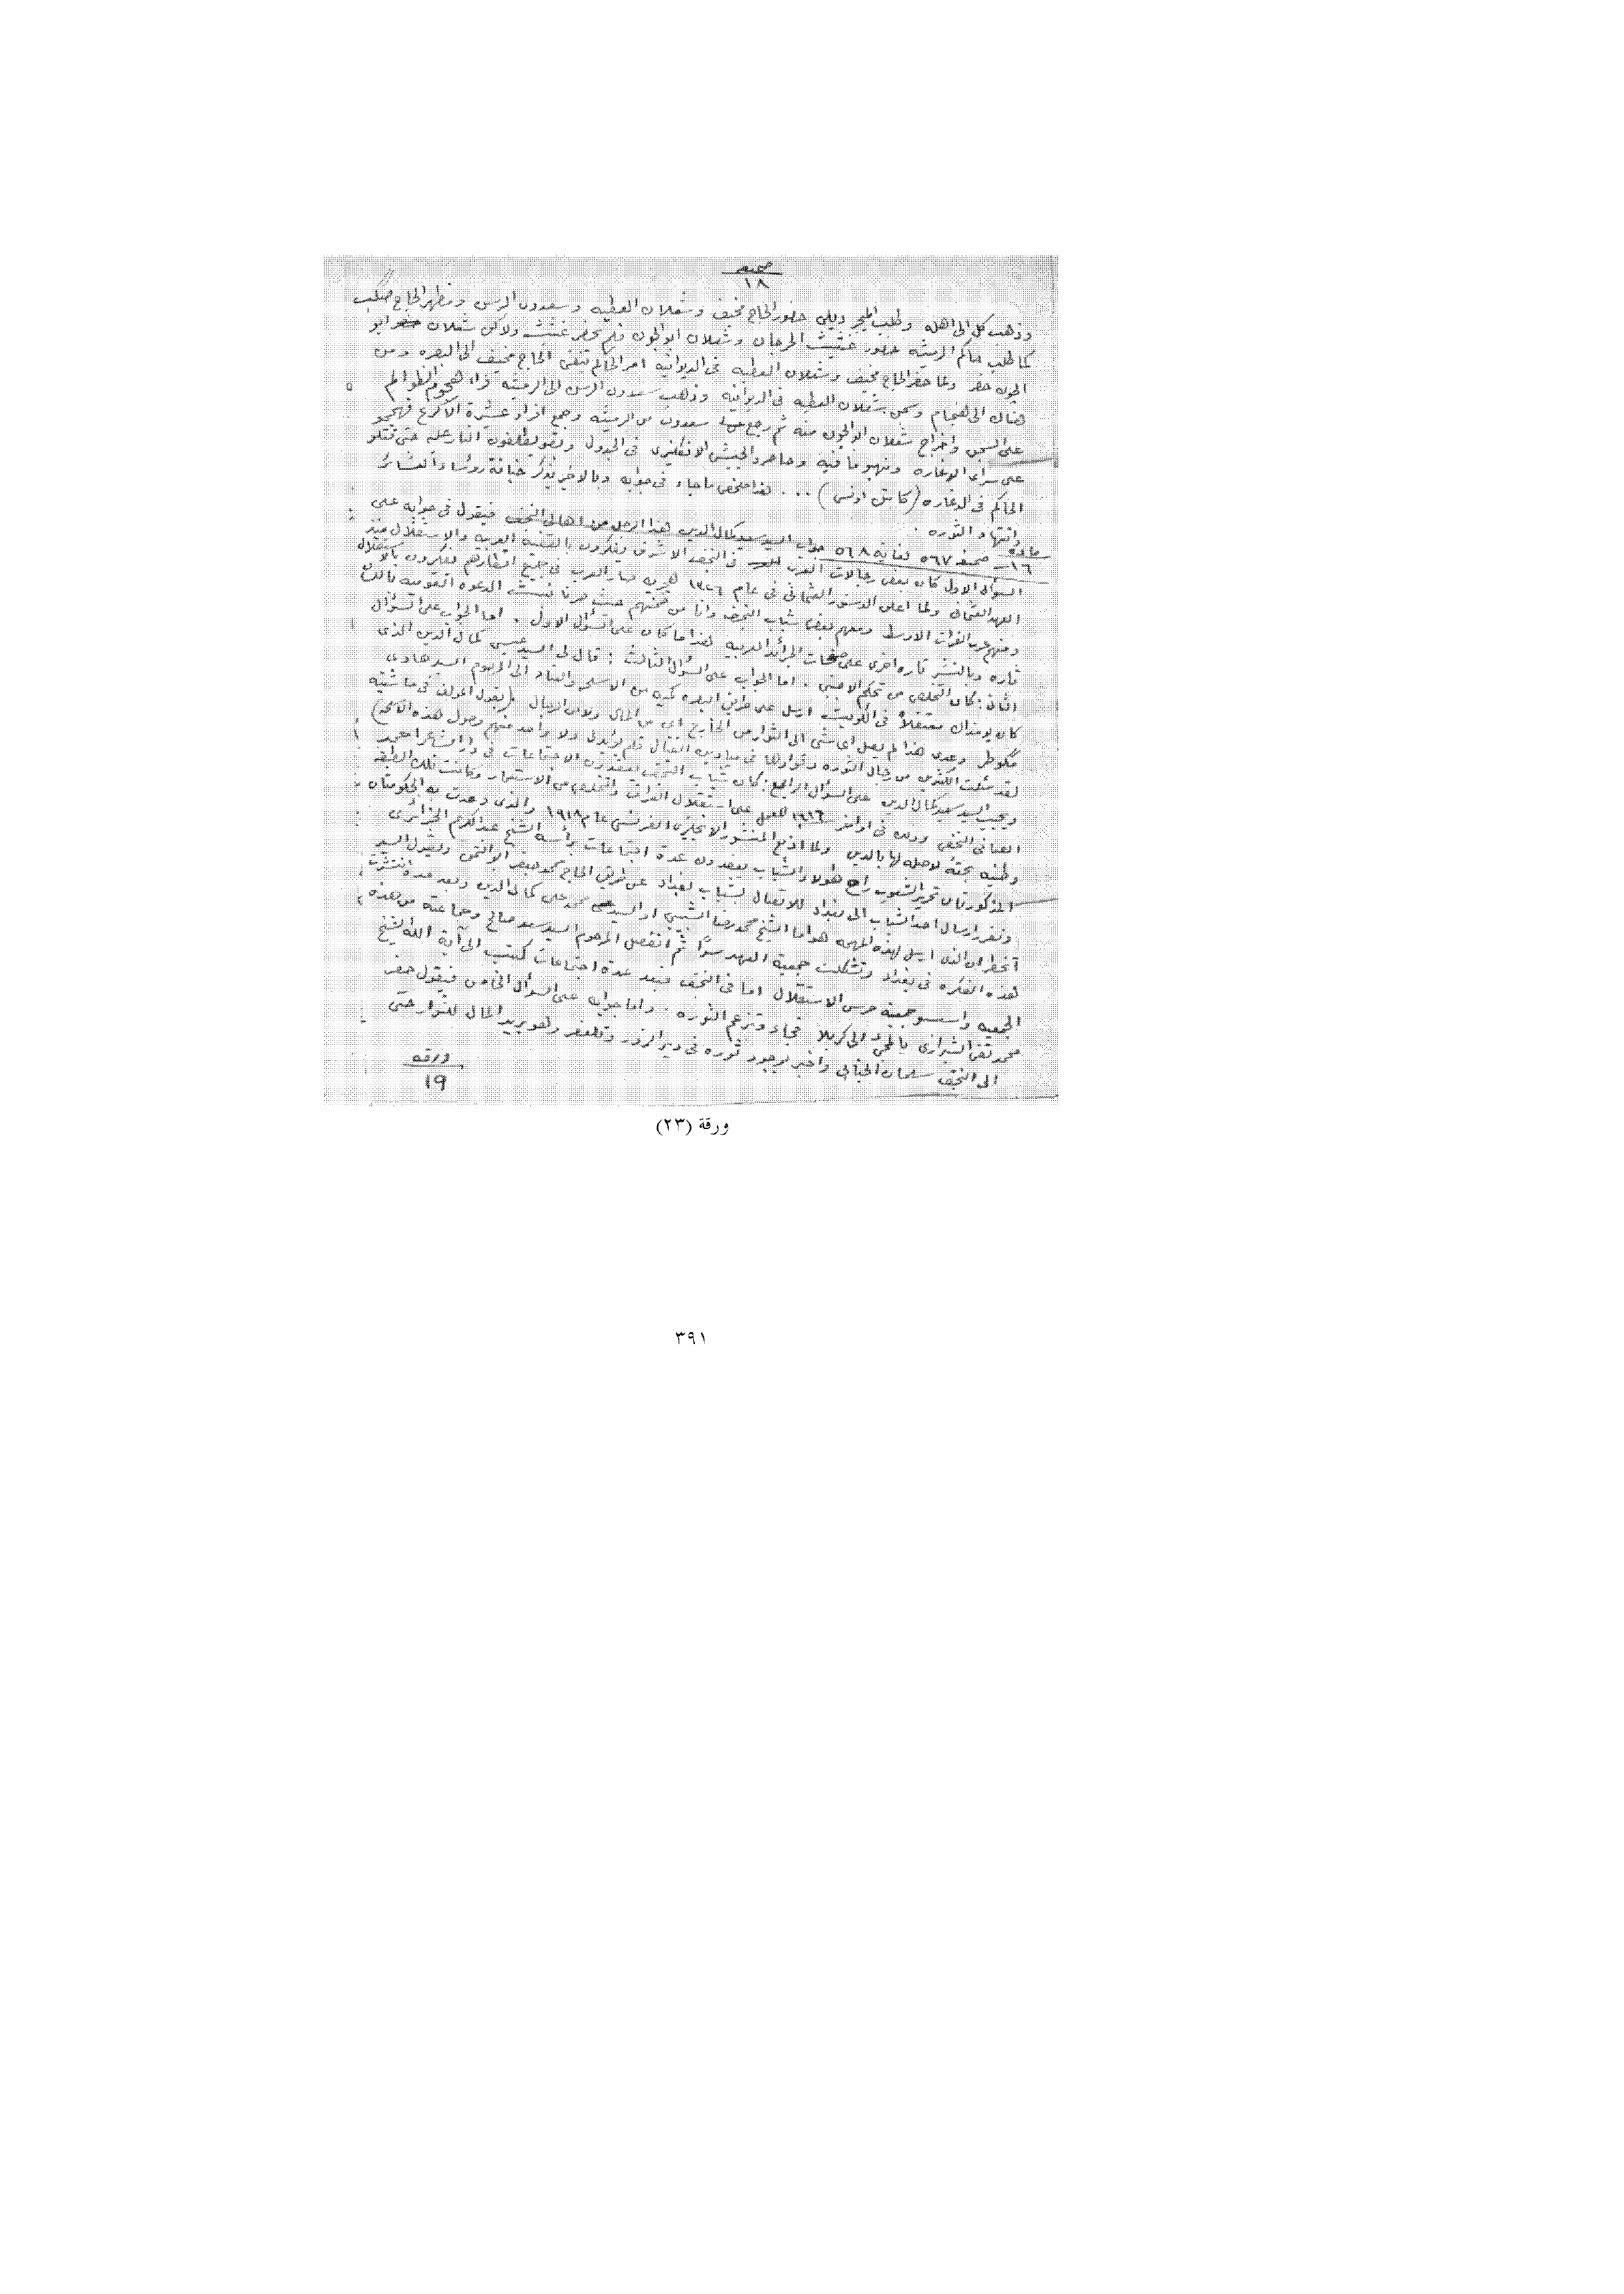 صحيفه
١٨
وذهب كل الى اهله وطلب الميجر ديلي حضور الحاج مخيف وشعلان العطيه وسعدون الرسن ومظهر الحاج صكب
كما طلب حاكم الرميثه حضور غثيث الحرجان وشعلان ابو الجون فلم يحضر غثيث ولاكن شعلان ابو
الجون حضر ولما حضر الحاج مخيف وشعلان العطيه في الديوانيه امر الحاكم بنفي الحاج مخيف الى البصره ومن
هناك الى هنجام وسجن شعلان العطيه في الديوانيه وذهب سعدون الرسن الى الرميثه هجوم الظوالم
على السجن واخراج شعلان ابو الجون منه ثم رجع سعدون من الرميثه وجمع افراد عشيرة الأكرع فهجمو
على سراي الدغاره ونهبو ما فيه وحاصرو الجيش الانكليزي في الجدول وبقو يطلقون النار عليه حتى قتلو
الحاكم في الدغاره (كابتن ) ... هذا ملخص ما جاء في جوابه وبالاخير يذكر خيانة رؤساء العشائر
وانتهاء الثوره .
ماده
١٦ – صحيفه ٥٦٧ لغاية ٥٦٨ جواب السيد سعيد كمال الدين هذا الرجل من اهالي النجف فيقول في جوابه على
السؤال الاول كان بعض رجالات العرب في النجف الاشرف يفكرون بالقضيه العربيه والاستقلال منذ
العهد العثماني ولما اعلن الدستور العثماني في عام ١٣٢٦ هجريه صار العرب في جميع اقطارهم يفكرون بالاستقلال
ومنهم عرب الفرات الاوسط ومعهم بعض شباب النجف وانا من ضمنهم حيث صرنا نبث الدعوه القوميه
تاره وبالنشر تاره اخرى على صفحات الجرائد العربيه هذا ما كان على السؤال الاول . اما الجواب على السؤال
الثاني : كان التخلص من تحكم الاجنبي . اما الجواب على السؤال الثالث : قال لي السيد عيسى كمال الدين الذي
كان يومذاك معتقلاً في الكويت ارسل على طريق البصره كميه من الاسلحه والعتاد الى المرحوم السيد هادي
مكوطر وعدى هذا لم يصل اي شئ الى الثوار من الخارج لا من المال ولا من الرجال . (يقول المؤلف في حاشيته
لقد سئلت الكثيرين من رجال الثوره وقوادها في ميادين القتال فلم يؤيدو لي ولا واحد منهم وصول هذه الاسلحه)
ويجيب السيد سعيد كمال الدين على السؤال الرابع : كان شباب النجف يعقدون الاجتماعات في دار
في النجف وذلك في اواخر سنة ١٩١٦ للعمل على استقلال العراق والتخلص من الاستعمار وكانت تلك
وطنيه بحته لا صله لها بالدين ولما اذيع المنشور الانجليزي الفرنسي عام ١٩١٨ والذي وعدت به الحكومتان
المذكورتان تحرير الشعوب راح هؤلاء الشباب يعقدون عدة اجتماعات يرأسها الشيخ عبد الكريم الجزائري
وتقرر ارسال احد الشباب الى بغداد للاتصال بشباب بغداد عن طريق الحاج محمد جعفر ابو التمن ويقول السيد
ان الذي ارسل لهذه المهمه هو اما الشيخ محمد رضا الشبيبي او السيد محمد علي كمال الدين وبعد مدة انتشرت
هذه الفكره في بغداد وتشكلت جمعية العهد سراً ثم انفصل المرحوم السيد سعد صالح وجماعته من هذه
الجمعيه واسسو جمعية حرس الاستقلال اما في النجف فبعد عدة اجتماعات كتب الى آية الله الشيخ
محمد تقي الشيرازي بالمجيء الى كربلا فجاء وتزعم الثوره . واما جوابه على السؤال الخامس فيقول حضر
الى النجف سلمان الجنابي واخبر بوجود ثوره في دير الزور وتلعفر وهو يريد المال للثوار حتى
ورقه
١٩
ورقة (٢٣)
٣٩١